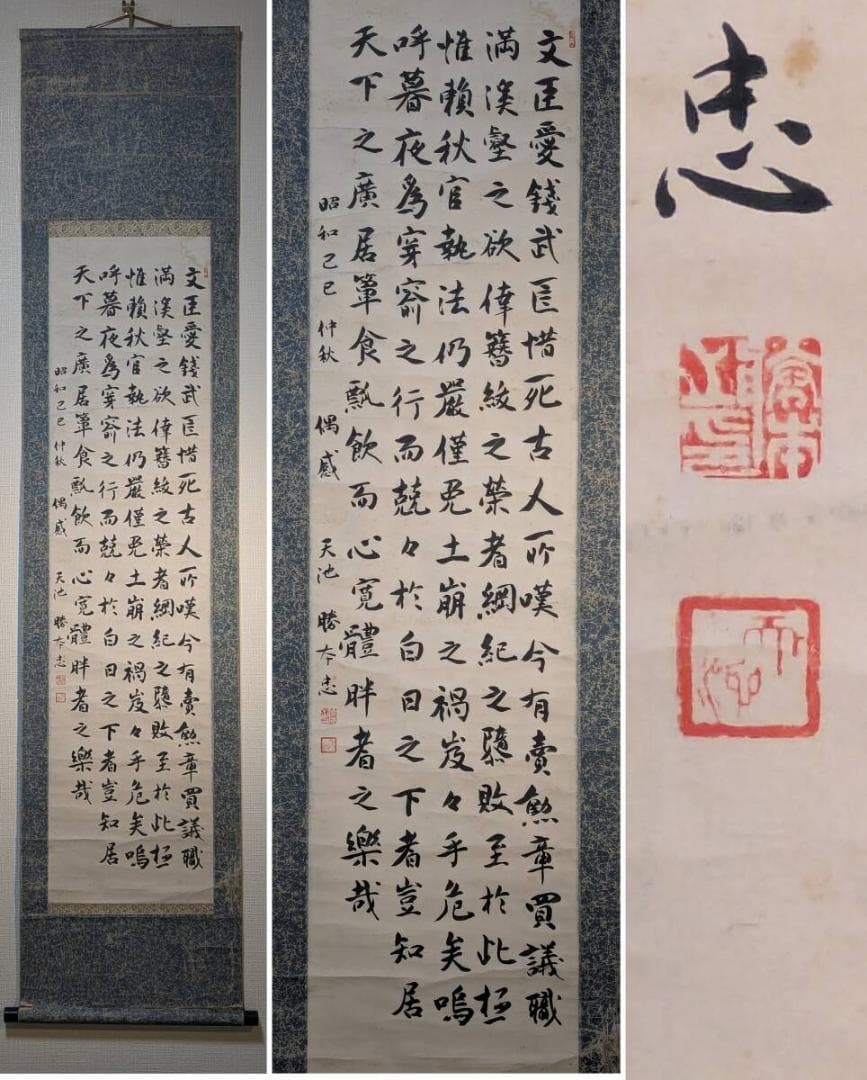 文臣愛錢武臣惜死古人所嘆今有賣勲章買議職
満溪壑之欲倖簪紱之榮者綱紀之隳敗至於此極
惟賴秋官執法仍嚴僅免土崩之禍岌々乎危矣嗚
呼暮夜爲穿窬之行而兢々於白日之下者豈知居
天下之廣居簞食瓢飲而心寛體胖者之樂哉
昭和己巳 仲秋 偶感 天池 勝本忠
文臣愛錢武臣惜死古人所嘆今有賣勲章買議職
満溪壑之欲倖簪紱之榮者綱紀之隳敗至於此極
惟賴秋官執法仍嚴僅免土崩之禍岌々乎危矣嗚
呼暮夜爲穿窬之行而兢々於白日之下者豈知居
天下之廣居簞食瓢飲而心寛體胖者之樂哉
昭和己巳 仲秋 偶感 天池 勝本忠
忠
天池